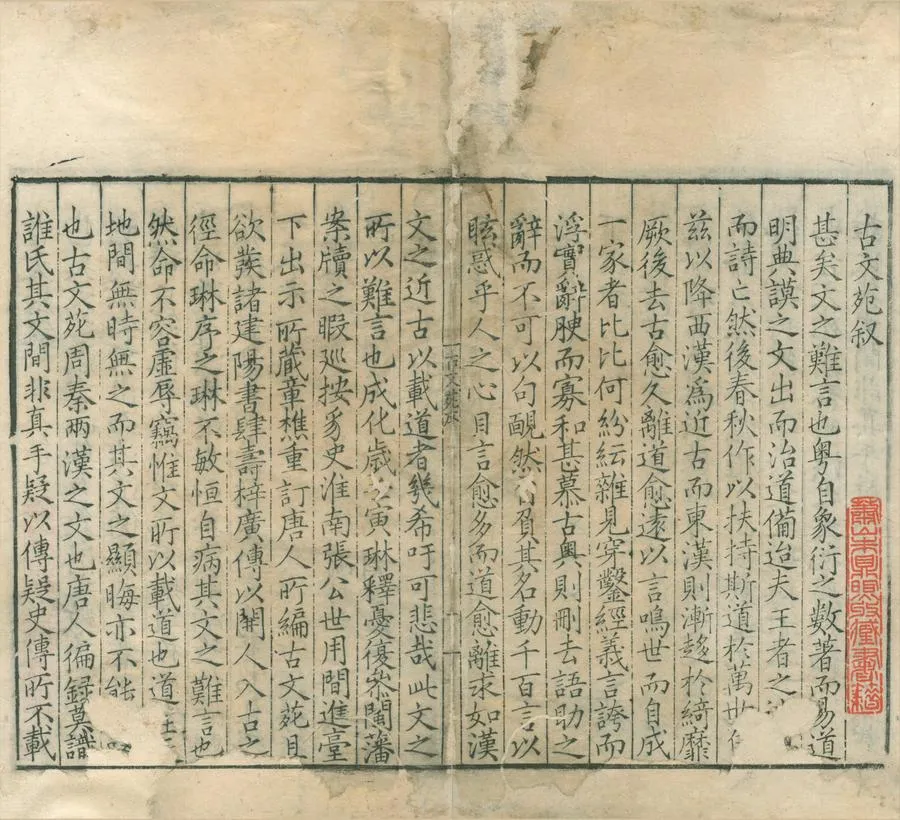 古文苑叙
甚矣文之難言也粤自象衍之數著而易道
明典謨之文出而治道備迨夫王者之
而詩亡然後春秋作以扶持斯道於萬世
兹以降西漢為近古而東漢則漸趍於綺靡
厥後去古愈久離道愈逺以言鳴世而自成
一家者比比何紛紜雜見穿鑿經義言誇而
浮實辭腴而寡和甚慕古奥則刪去語助之
辭而不可以句覼然 負其名動千百言以
眩惑乎人之心目言愈多而道愈離求如漢
古文苑叙
文之近古以載道者幾希吁可悲哉此文之
所以難言也成化歲壬寅琳釋憂復叅閩藩
案牘之暇巡按豸史淮南張公世用間進臺
下出示所蔵章樵重訂唐人所編古文苑且
欲羨諸建陽書肆壽梓廣傳以開人入古之
徑命琳序之琳不敏恒自病其文之難言也
然命不容虛辱竊惟文所以載道也道在
地間無時無之而其文之顯晦亦不能
也古文苑周秦兩漢之文也唐人徧録莫識
誰氏其文間非真手疑以傳疑史傳所不載
蕭山朱 収蔵書籍